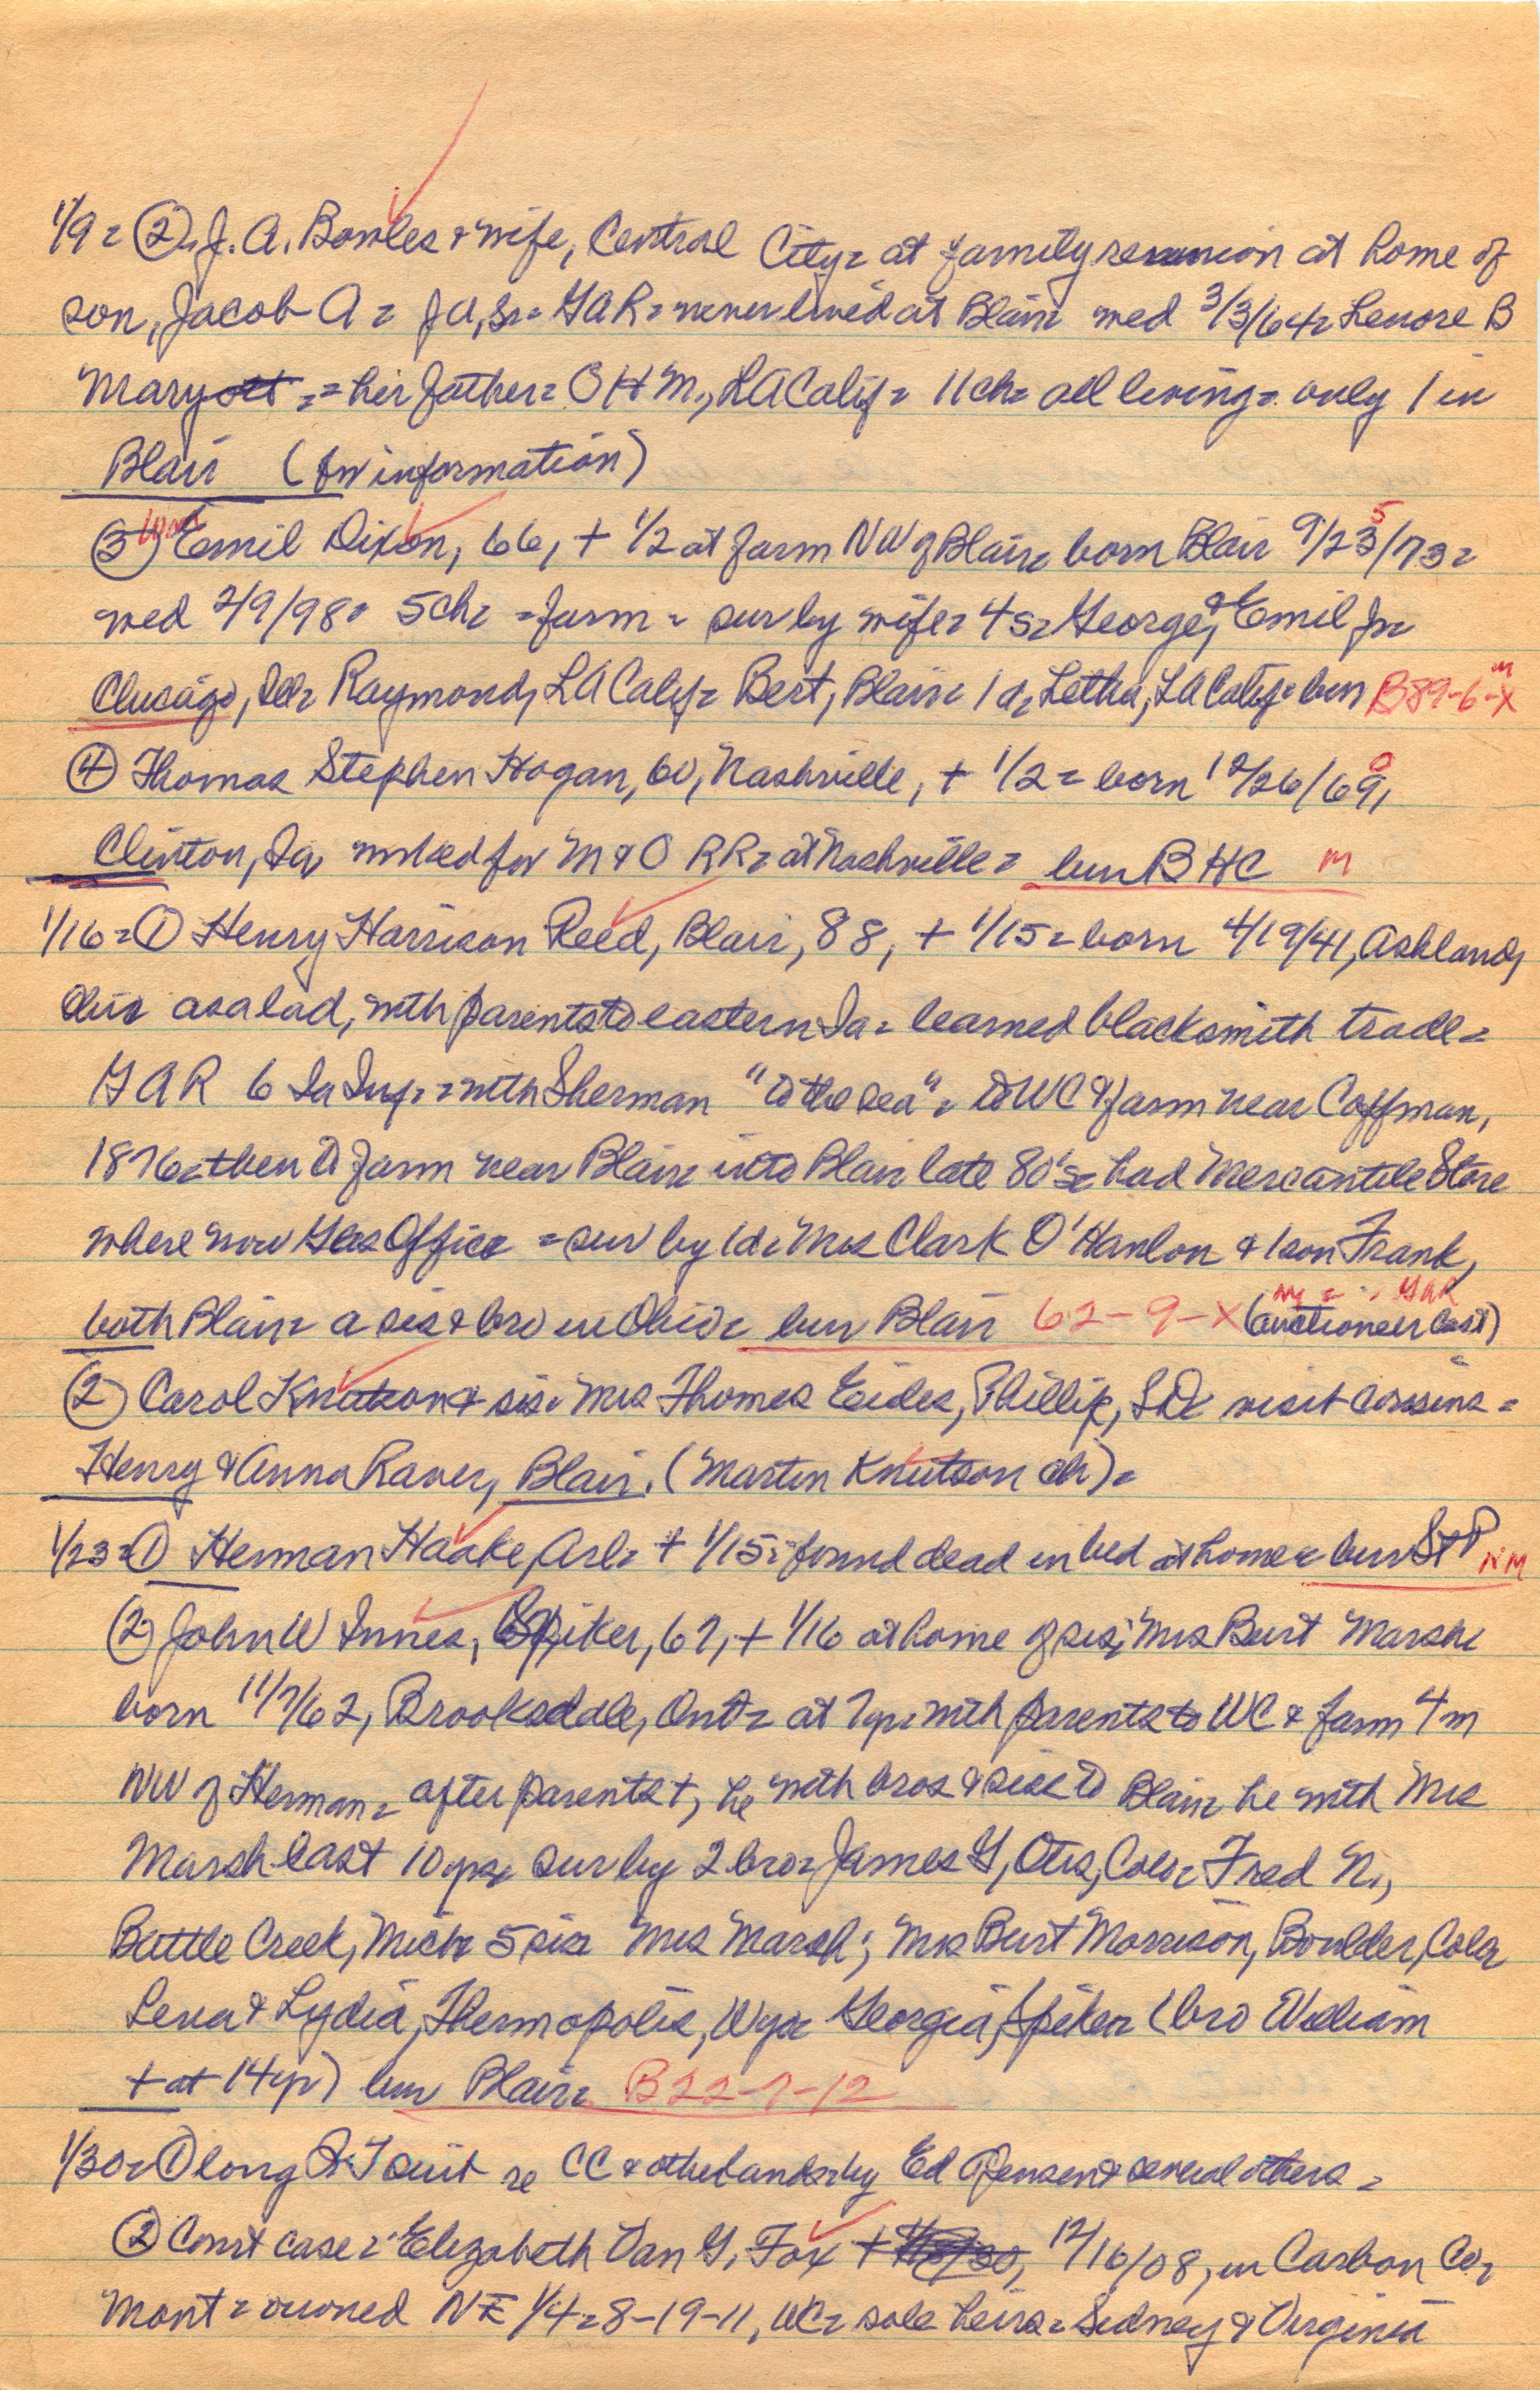 1/9 = ② J. A. Bowles & wife, Central City = at family reunion at home of
son, Jacob A = JA, Sr = GAR = never lived at Blair = wed 3/3/64 = Lenore B
Maryott = = her father = O H M., LA Calif = 11 ch = all living = only 1 in
Blair (for information)
③ Emil Dixon, 66, + 1/2 at farm NW of Blair = born Blair 9/23/73 = 5
wed 2/9/98 = 5 ch = = farm = sur by wife = 4 s = George, & Emil Jr =
Chicago, Ill = Raymond, LA Calif = Bert, Blair = 1 d, Letha, LA Calif = bur B89-6-X m
④ Thomas Stephen Hogan, 60, Nashville, + 1/2 = born 12/26/69,
Clinton, Ia, worked for M & O RR = at Nashville = bur B HC M
1/16 = ① Henry Harrison Reed, Blair, 88, + 1/15 = born 4/19/41, Ashland,
Ohio as a lad, with parents to eastern Ia = learned blacksmith trade =
GAR 6 Ia Inf = with Sherman "to the sea" = to WC & farm near Coffman,
1876 = then to farm near Blair = into Blair late 80's = had Mercantile Store
where now Gas Office = sur by 1 d = Mrs Clark O'Hanlon & 1 son Frank,
both Blair = a sis & bro in Ohio = bur Blair 62-9-X GAR (auctioneer last)
② Carol Knutson & sis = Mrs Thomas Eides, Phillip, SD = visit cousins =
Henry & Anna Raver, Blair. (Martin Knutson ch) =
1/23 = ① Herman Haake, Arl = + 1/15 = found dead in bed at home = bur St P NM
② John W Innes, Spiker, 67, + 1/16 at home of sis, Mrs Burt Marsh =
born 11/7/62, Brooksdale, Ont = at 7 yr with parents to WC & farm 4 m
NW of Herman = after parents +, he with bros & siss to Blair = he with Mrs
Marsh last 10 yrs, sur by 2 bro = James G, Otis, Colo = Fred N.,
Battle Creek, Mich = 5 sis = Mrs Marsh; Mrs Burt Morrison, Boulder, Colo =
Lena & Lydia, Thermopolis, Wyo = Georgia, Spiker = (bro William
+ at 14 yr) bur Blair = B22-7-12
1/30 = ① long suit re CC & other lands = by Ed Jensen & several others =
② Court case = Elizabeth Van G. Fox + 12/16/08, in Carbon Co,
Mont = owned NE 1/4 = 8-19-11, WC = sole heirs = Sidney & Virginia